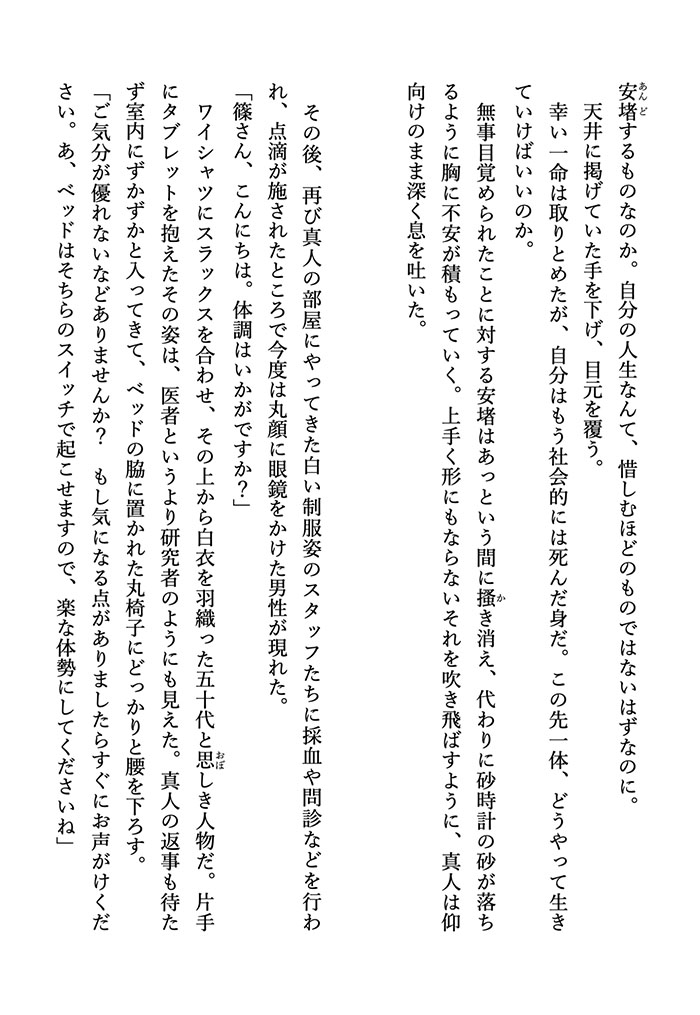 安堵するものなのか。自分の人生なんて、惜しむほどのものではないはずなのに。
　天井に掲げていた手を下げ、目元を覆う。
　幸い一命は取りとめたが、自分はもう社会的には死んだ身だ。この先一体、どうやって生き
ていけばいいのか。
　無事目覚められたことに対する安堵はあっという間に掻き消え、代わりに砂時計の砂が落ち
るように胸に不安が積もっていく。上手く形にもならないそれを吹き飛ばすように、真人は仰
向けのまま深く息を吐いた。
　その後、再び真人の部屋にやってきた白い制服姿のスタッフたちに採血や問診などを行わ
れ、点滴が施されたところで今度は丸顔に眼鏡をかけた男性が現れた。
「篠さん、こんにちは。体調はいかがですか？」
　ワイシャツにスラックスを合わせ、その上から白衣を羽織った五十代と思しき人物だ。片手
にタブレットを抱えたその姿は、医者というより研究者のようにも見えた。真人の返事も待た
ず室内にずかずかと入ってきて、ベッドの脇に置かれた丸椅子にどっかりと腰を下ろす。
「ご気分が優れないなどありませんか？　もし気になる点がありましたらすぐにお声がけくだ
さい。あ、ベッドはそちらのスイッチで起こせますので、楽な体勢にしてくださいね」